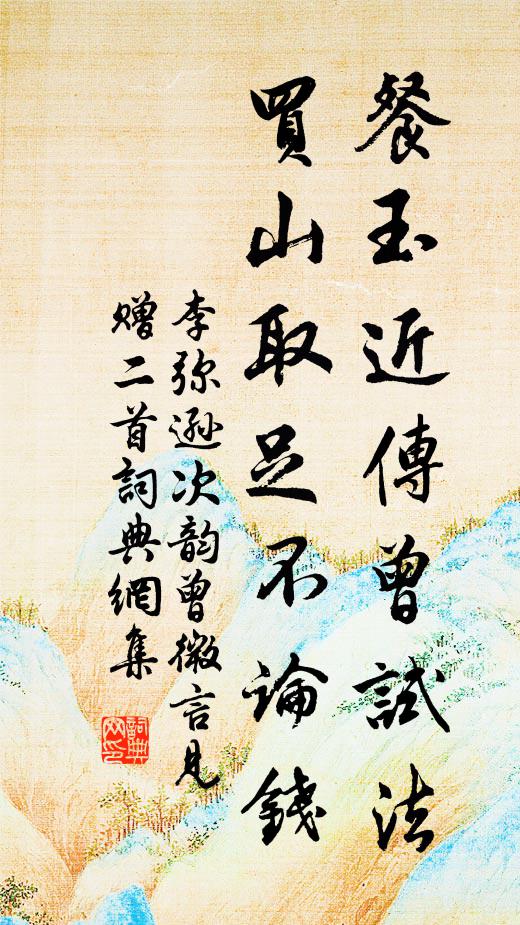 餐玉近傳曾試法
買山取足不論錢
李弥遜次韵曾微言見
贈二首詞典網集
詞典
网印